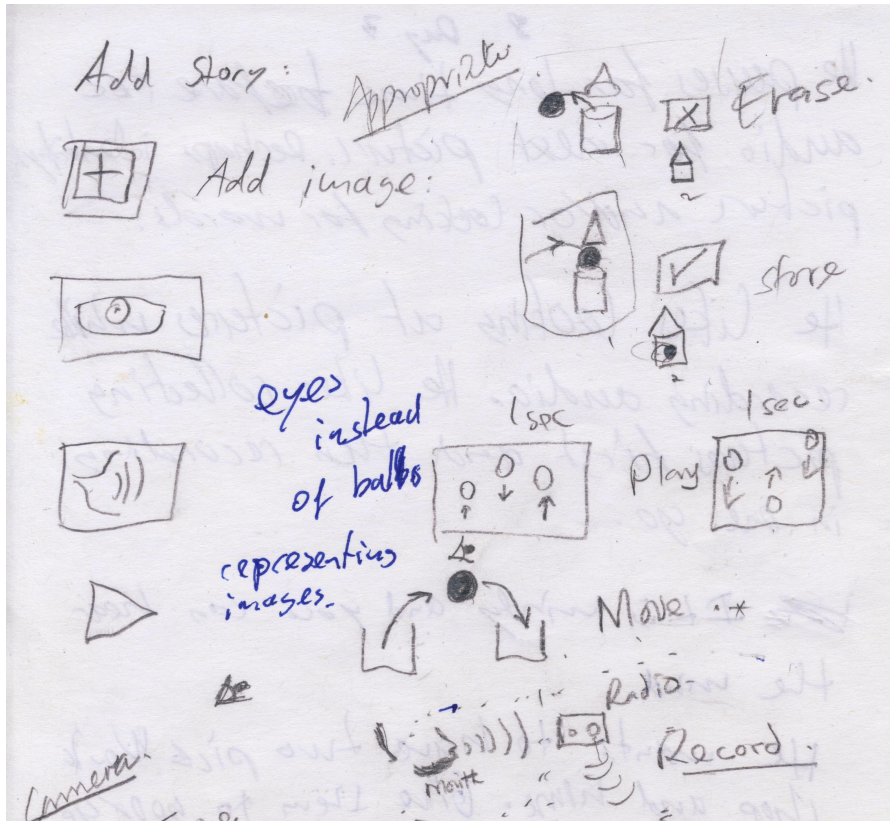 Add story:
Appropriate
Erase.
Add image:
store
eyes
instead
of balls
representing
images.
1 sec
1 sec.
Play
Move
Radio
mouth
Record.
Camera.